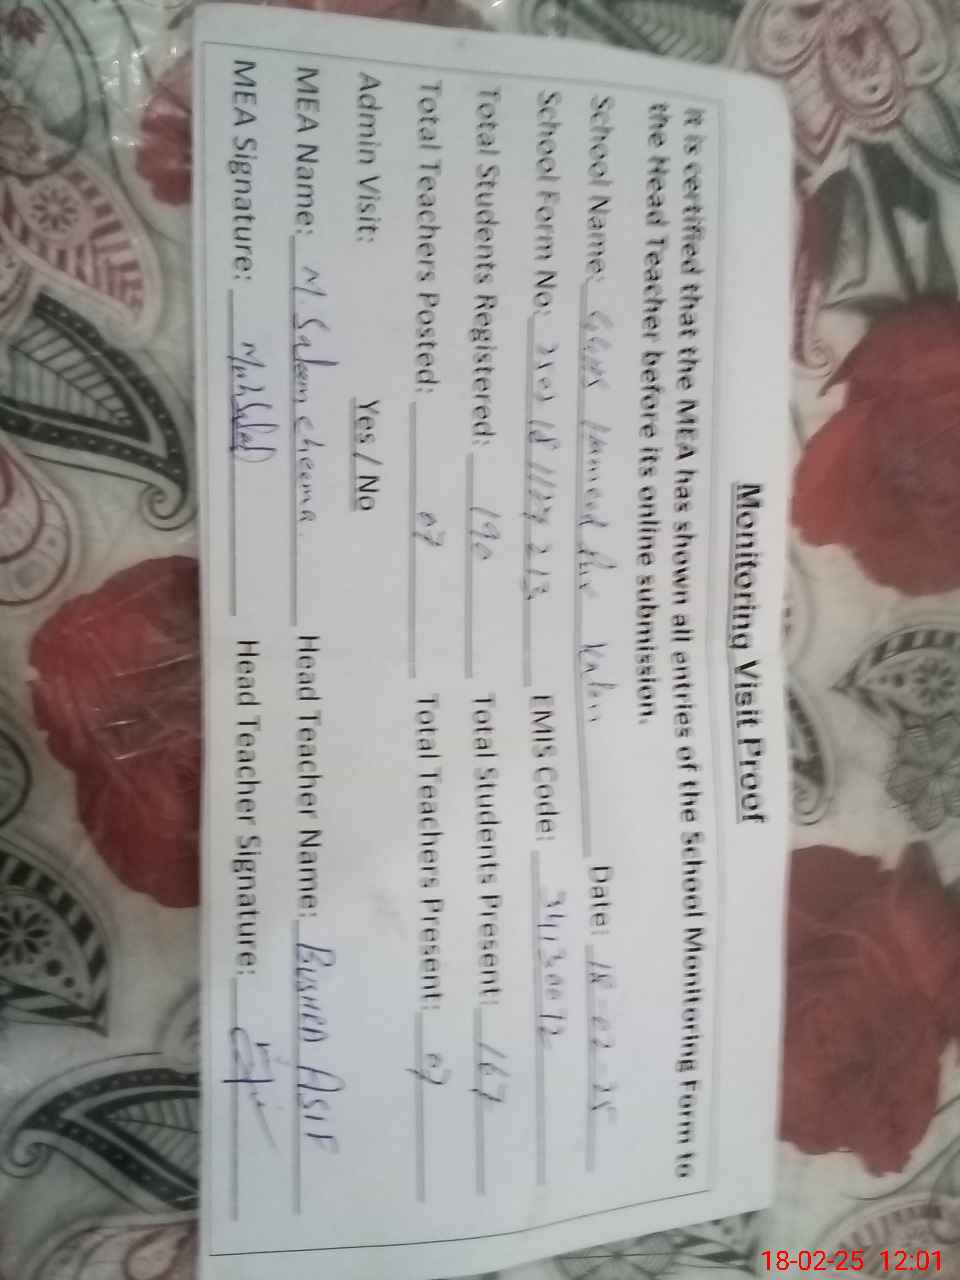 Monitoring Visit Proof
It is certified that the MEA has shown all entries of the School Monitoring Form to
the Head Teacher before its online submission.
School Name: Date: 18-02-25
School Form No: EMIS Code: 34130072
Total Students Registered: 190 Total Students Present: 167
Total Teachers Posted: 07 Total Teachers Present: 07
Admin Visit: Yes / No
MEA Name: M. Saleem cheema. Head Teacher Name: BUSHRA ASIF
MEA Signature: Head Teacher Signature:
18-02-25 12:01